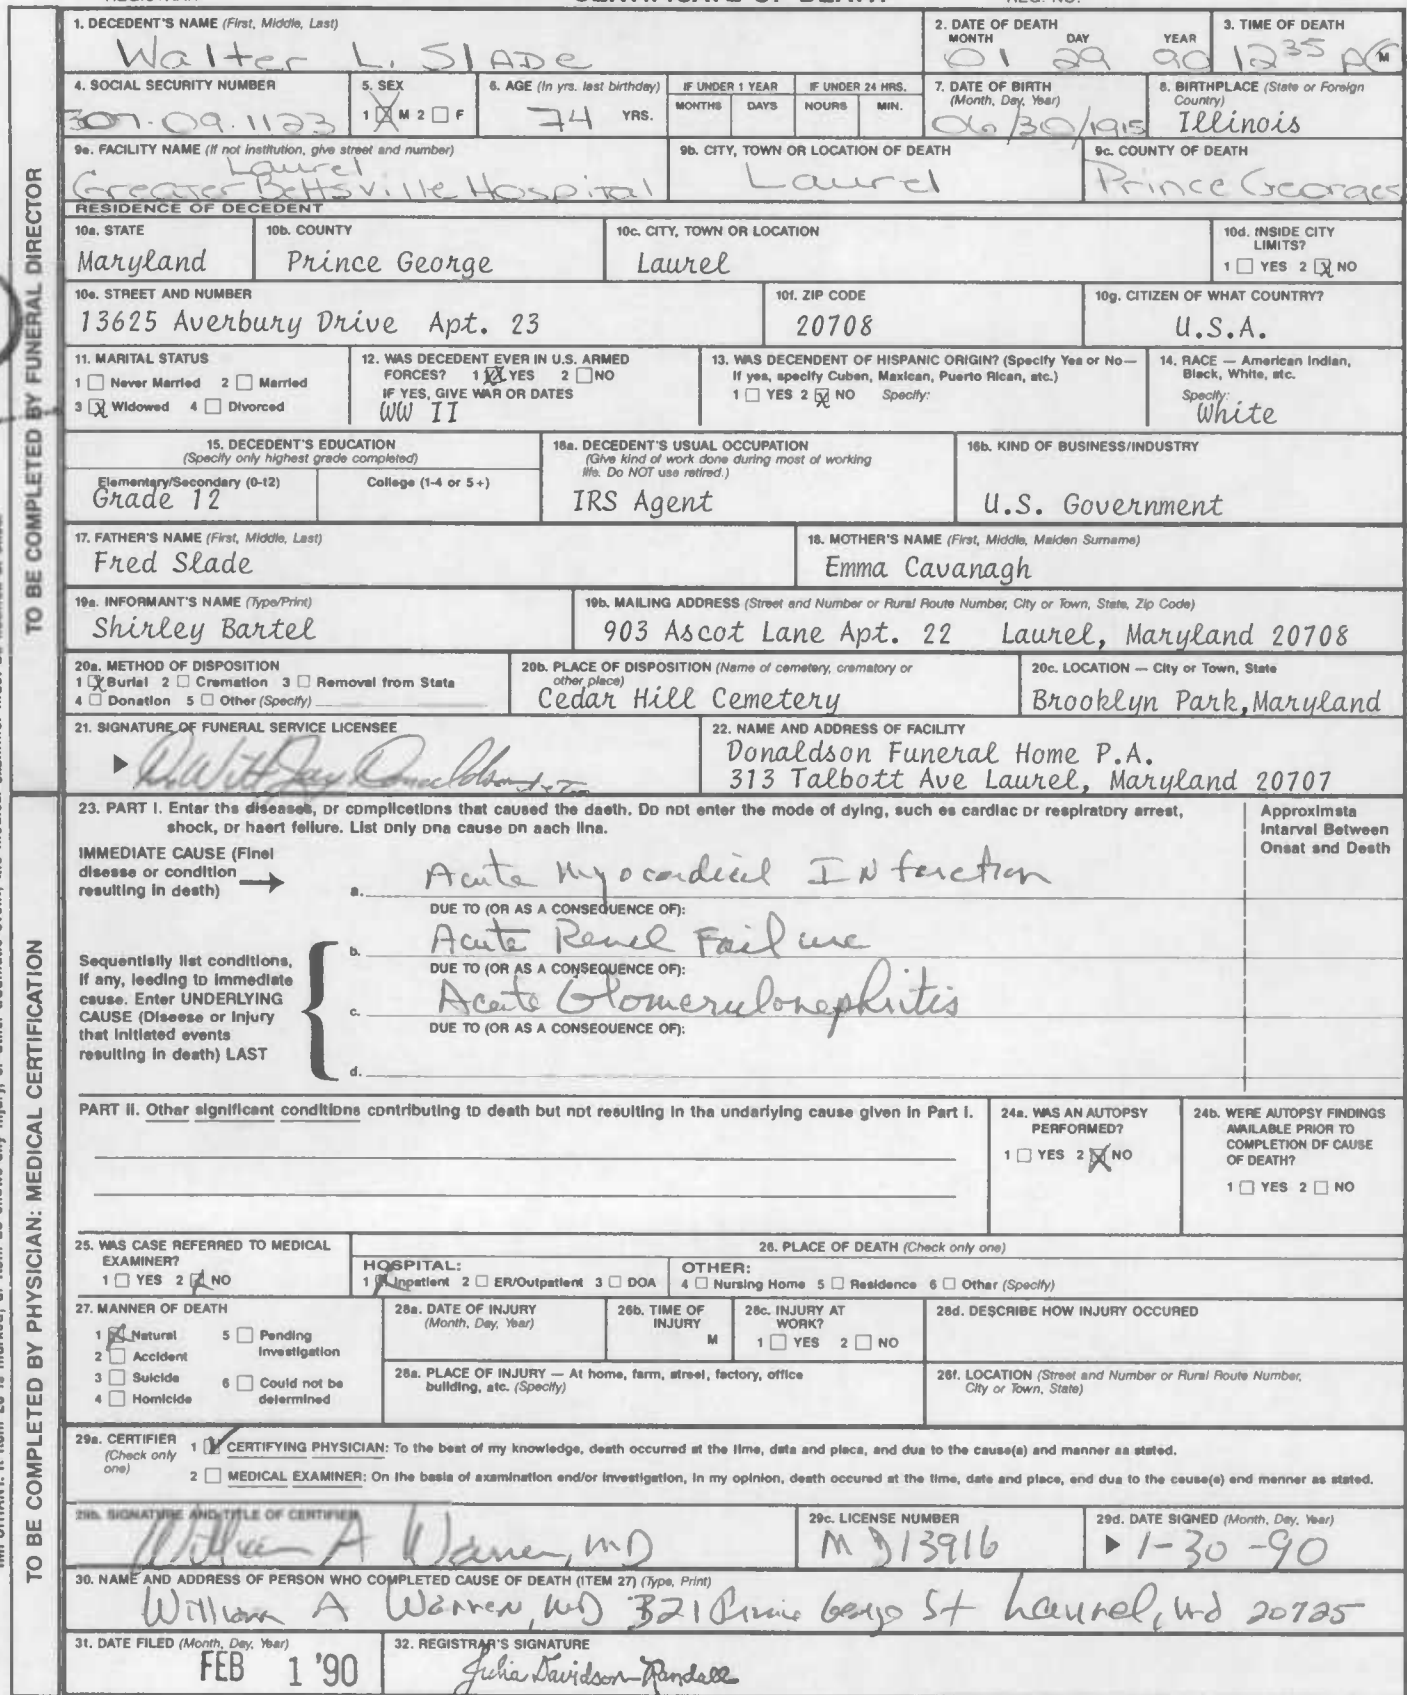 CERTIFICATE OF DEATH
1. DECEDENT'S NAME (First, Middle, Last)
Walter L. SLADE
2. DATE OF DEATH
MONTH DAY YEAR
01 29 90
3. TIME OF DEATH
12 35 P M
4. SOCIAL SECURITY NUMBER
307.09.1123
5. SEX
1 ☒ M 2 ☐ F
6. AGE (In yrs. last birthday)
74 YRS.
IF UNDER 1 YEAR
MONTHS DAYS
IF UNDER 24 HRS.
HOURS MIN.
7. DATE OF BIRTH
(Month, Day, Year)
06/30/1915
8. BIRTHPLACE (State or Foreign
Country)
Illinois
9a. FACILITY NAME (If not institution, give street and number)
Laurel
Greater Beltsville Hospital
9b. CITY, TOWN OR LOCATION OF DEATH
Laurel
9c. COUNTY OF DEATH
Prince Georges
RESIDENCE OF DECEDENT
10a. STATE
Maryland
10b. COUNTY
Prince George
10c. CITY, TOWN OR LOCATION
Laurel
10d. INSIDE CITY
LIMITS?
1 ☐ YES 2 ☒ NO
10e. STREET AND NUMBER
13625 Averbury Drive Apt. 23
10f. ZIP CODE
20708
10g. CITIZEN OF WHAT COUNTRY?
U.S.A.
11. MARITAL STATUS
1 ☐ Never Married 2 ☐ Married
3 ☒ Widowed 4 ☐ Divorced
12. WAS DECEDENT EVER IN U.S. ARMED
FORCES? 1 ☒ YES 2 ☐ NO
IF YES, GIVE WAR OR DATES
WW II
13. WAS DECENDENT OF HISPANIC ORIGIN? (Specify Yes or No—
If yes, specify Cuban, Mexican, Puerto Rican, etc.)
1 ☐ YES 2 ☒ NO Specify:
14. RACE — American Indian,
Black, White, etc.
Specify:
White
15. DECEDENT'S EDUCATION
(Specify only highest grade completed)
Elementary/Secondary (0-12) College (1-4 or 5+)
Grade 12
16a. DECEDENT'S USUAL OCCUPATION
(Give kind of work done during most of working
life. Do NOT use retired.)
IRS Agent
16b. KIND OF BUSINESS/INDUSTRY
U.S. Government
17. FATHER'S NAME (First, Middle, Last)
Fred Slade
18. MOTHER'S NAME (First, Middle, Maiden Surname)
Emma Cavanagh
19a. INFORMANT'S NAME (Type/Print)
Shirley Bartel
19b. MAILING ADDRESS (Street and Number or Rural Route Number, City or Town, State, Zip Code)
903 Ascot Lane Apt. 22 Laurel, Maryland 20708
20a. METHOD OF DISPOSITION
1 ☒ Burial 2 ☐ Cremation 3 ☐ Removal from State
4 ☐ Donation 5 ☐ Other (Specify)
20b. PLACE OF DISPOSITION (Name of cemetery, crematory or
other place)
Cedar Hill Cemetery
20c. LOCATION — City or Town, State
Brooklyn Park, Maryland
21. SIGNATURE OF FUNERAL SERVICE LICENSEE
DeWitt Jay Donaldson
22. NAME AND ADDRESS OF FACILITY
Donaldson Funeral Home P.A.
313 Talbott Ave Laurel, Maryland 20707
TO BE COMPLETED BY FUNERAL DIRECTOR
23. PART I. Enter the diseases, or complications that caused the death. Do not enter the mode of dying, such as cardiac or respiratory arrest,
shock, or heart failure. List only one cause on each line.
Approximate
Interval Between
Onset and Death
IMMEDIATE CAUSE (Final
disease or condition
resulting in death)
a. Acute Myocardial INfarction
DUE TO (OR AS A CONSEQUENCE OF):
b. Acute Renal Failure
DUE TO (OR AS A CONSEQUENCE OF):
c. Acute Glomerulonephritis
DUE TO (OR AS A CONSEQUENCE OF):
d.
Sequentially list conditions,
if any, leading to immediate
cause. Enter UNDERLYING
CAUSE (Disease or injury
that initiated events
resulting in death) LAST
PART II. Other significant conditions contributing to death but not resulting in the underlying cause given in Part I.
24a. WAS AN AUTOPSY
PERFORMED?
1 ☐ YES 2 ☒ NO
24b. WERE AUTOPSY FINDINGS
AVAILABLE PRIOR TO
COMPLETION OF CAUSE
OF DEATH?
1 ☐ YES 2 ☐ NO
25. WAS CASE REFERRED TO MEDICAL
EXAMINER?
1 ☐ YES 2 ☒ NO
26. PLACE OF DEATH (Check only one)
HOSPITAL:
1 ☒ Inpatient 2 ☐ ER/Outpatient 3 ☐ DOA
OTHER:
4 ☐ Nursing Home 5 ☐ Residence 6 ☐ Other (Specify)
27. MANNER OF DEATH
1 ☒ Natural 5 ☐ Pending
Investigation
2 ☐ Accident
3 ☐ Suicide 6 ☐ Could not be
4 ☐ Homicide determined
28a. DATE OF INJURY
(Month, Day, Year)
28b. TIME OF
INJURY
M
28c. INJURY AT
WORK?
1 ☐ YES 2 ☐ NO
28d. DESCRIBE HOW INJURY OCCURED
28e. PLACE OF INJURY — At home, farm, street, factory, office
building, etc. (Specify)
28f. LOCATION (Street and Number or Rural Route Number,
City or Town, State)
29a. CERTIFIER
(Check only
one)
1 ☒ CERTIFYING PHYSICIAN: To the best of my knowledge, death occurred at the time, date and place, and due to the cause(s) and manner as stated.
2 ☐ MEDICAL EXAMINER: On the basis of examination and/or investigation, in my opinion, death occured at the time, date and place, and due to the cause(s) and manner as stated.
29b. SIGNATURE AND TITLE OF CERTIFIER
William A Warren, MD
29c. LICENSE NUMBER
MD13916
29d. DATE SIGNED (Month, Day, Year)
1-30-90
30. NAME AND ADDRESS OF PERSON WHO COMPLETED CAUSE OF DEATH (ITEM 27) (Type, Print)
William A Warren, MD 321 Prince George St Laurel, Md 20725
31. DATE FILED (Month, Day, Year)
FEB 1 '90
32. REGISTRAR'S SIGNATURE
Julia Davidson-Randall
TO BE COMPLETED BY PHYSICIAN: MEDICAL CERTIFICATION